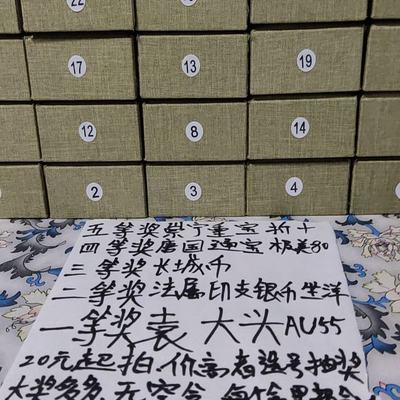 22
17
13
19
12
8
14
2
3
9
4
五等奖崇宁重宝折十
四等奖唐国通宝极美80
三等奖长城币
二等奖法属印支银币坐洋
一等奖袁大头AU55
20元起拍.价高者选号抽奖
大奖多多,无空盒,每盒